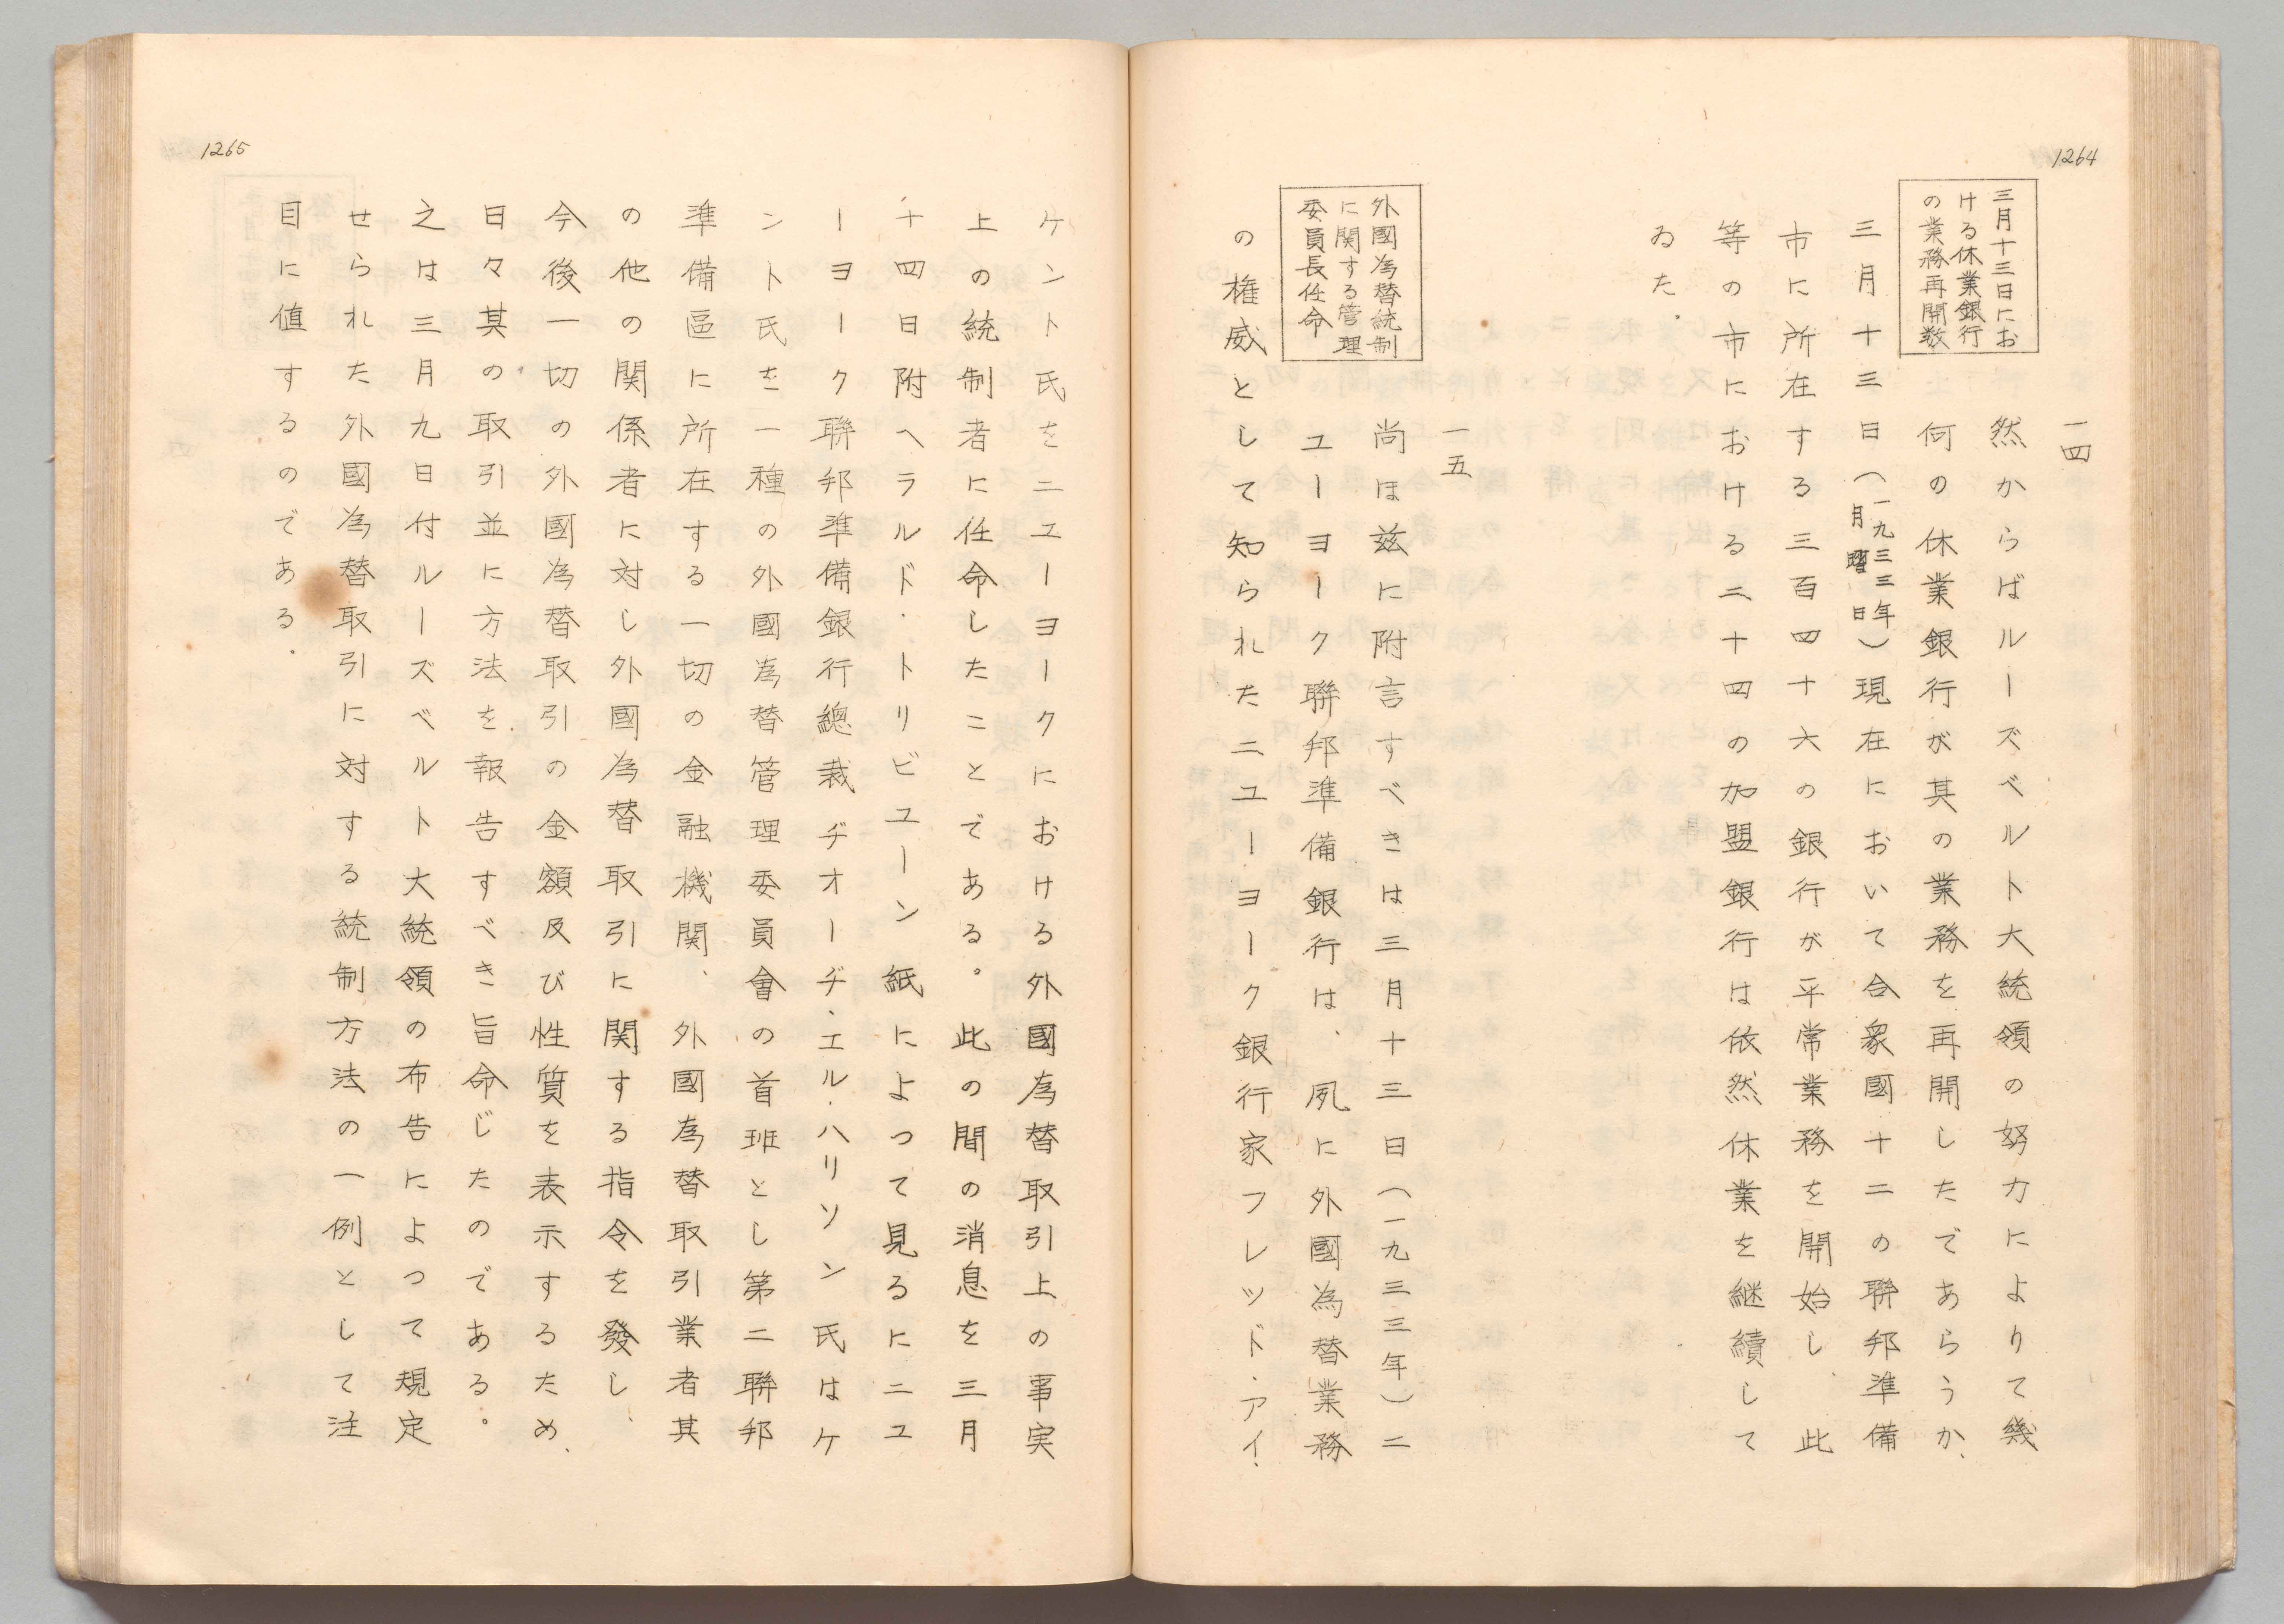 1264
一四
三月十三日にお
ける休業銀行
の業務再開数
然からばルーズベルト大統領の努力によりて幾
何の休業銀行が其の業務を再開したであらうか、
三月十三日(一九三三年月曜日)現在において合衆國十二の聯邦準備
市に所在する三百四十六の銀行が平常業務を開始し、此
等の市における二十四の加盟銀行は依然休業を継續して
ゐた。
一五
外國為替統制
に関する管理
委員長任命
尚ほ茲に附言すべきは三月十三日(一九三三年)ニ
ユーヨーク聯邦準備銀行は、夙に外國為替業務
の権威として知られたニユーヨーク銀行家フレッド・アイ・
1265
ケント氏をニユーヨークにおける外國為替取引上の事実
上の統制者に任命したことである。此の間の消息を三月
十四日附ヘラルド・トリビユーン紙によつて見るにニユ
ーヨーク聯邦準備銀行總裁ヂオーヂ・エル・ハリソン氏はケ
ント氏を一種の外國為替管理委員會の首班とし第二聯邦
準備區に所在する一切の金融機関、外國為替取引業者其
の他の関係者に対し外國為替取引に関する指令を發し、
今後一切の外國為替取引の金額及び性質を表示するため、
日々其の取引並に方法を報告すべき旨命じたのである。
之は三月九日付ルーズベルト大統領の布告によつて規定
せられた外國為替取引に対する統制方法の一例として注
目に値するのである.